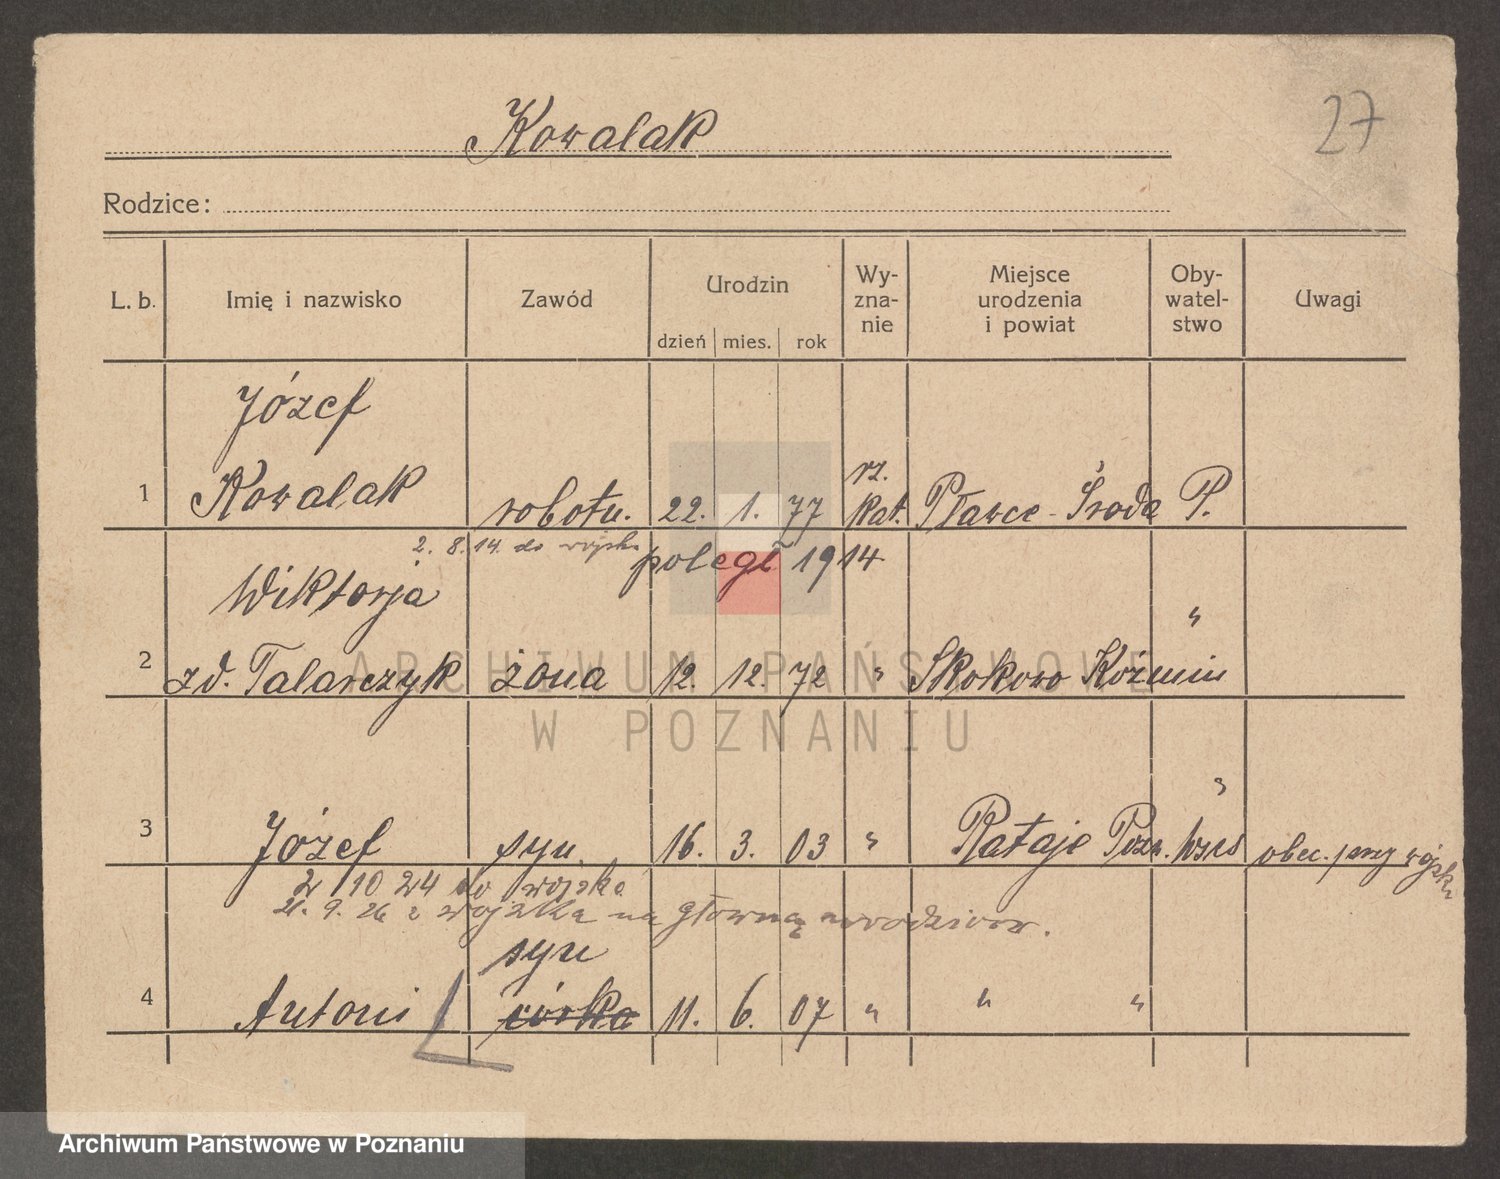 27
Kowalak
Rodzice:
L. b. Imię i nazwisko Zawód Urodzin dzień mies. rok Wy-zna-nie Miejsce urodzenia i powiat Oby-watel-stwo Uwagi
Józef
1 Kowalak robotn. 22. 1. 77 rz. kat. Pławce - Środa P.
2. 8. 14. do wojska poległ 1914
Wiktorja "
2 zd. Talarczyk żona 12. 12. 72 " Skokowo Koźmin
"
3 Józef syn. 16. 3. 03 " Rataje Pozn. obec. przy wojsku
2 10 24 do wojska
21. 9. 26 z wojska na główną
syn
4 Antoni córka 11. 6. 07 " " "
ARCHIWUM PAŃSTWOWE
W POZNANIU
Archiwum Państwowe w Poznaniu